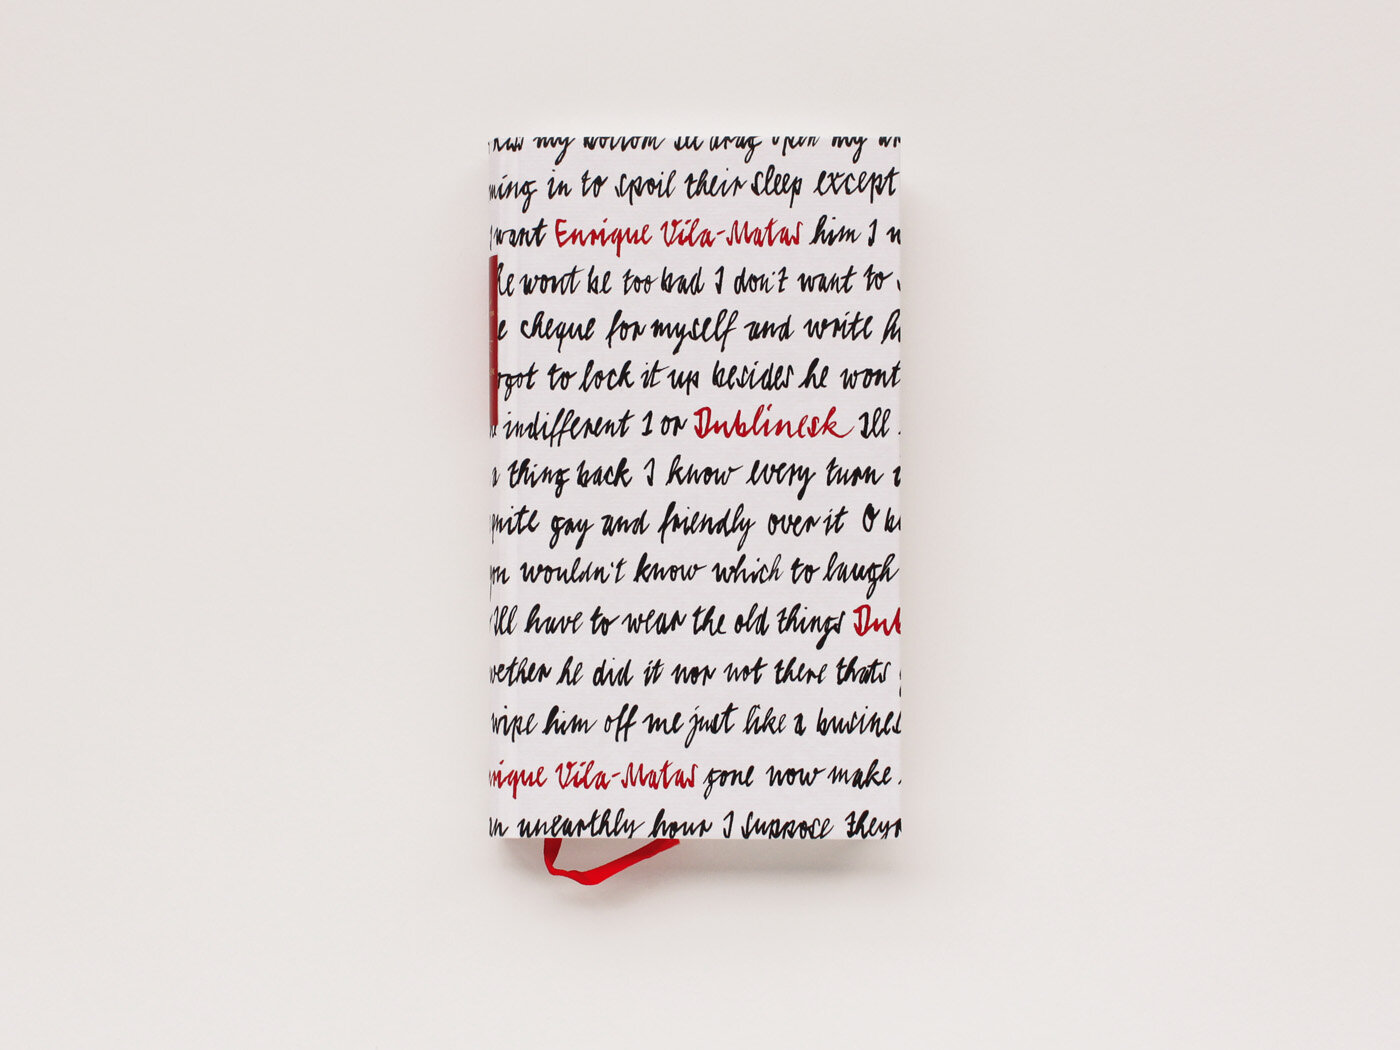 my bottom Ill drag open my
in to spoil their sleep except
want Enrique Vila-Matas him I
he wont be too bad I don't want to
cheque for myself and write
to lock it up besides he wont
indifferent 1 or Dublinesk Ill
a thing back I know every turn
quite gay and friendly over it O
you wouldn't know which to laugh
Ill have to wear the old things Dub
whether he did it nor not there thats
wipe him off me just like a busines
nrique Vila-Matas gone now make
an unearthly hour I suppose theyr